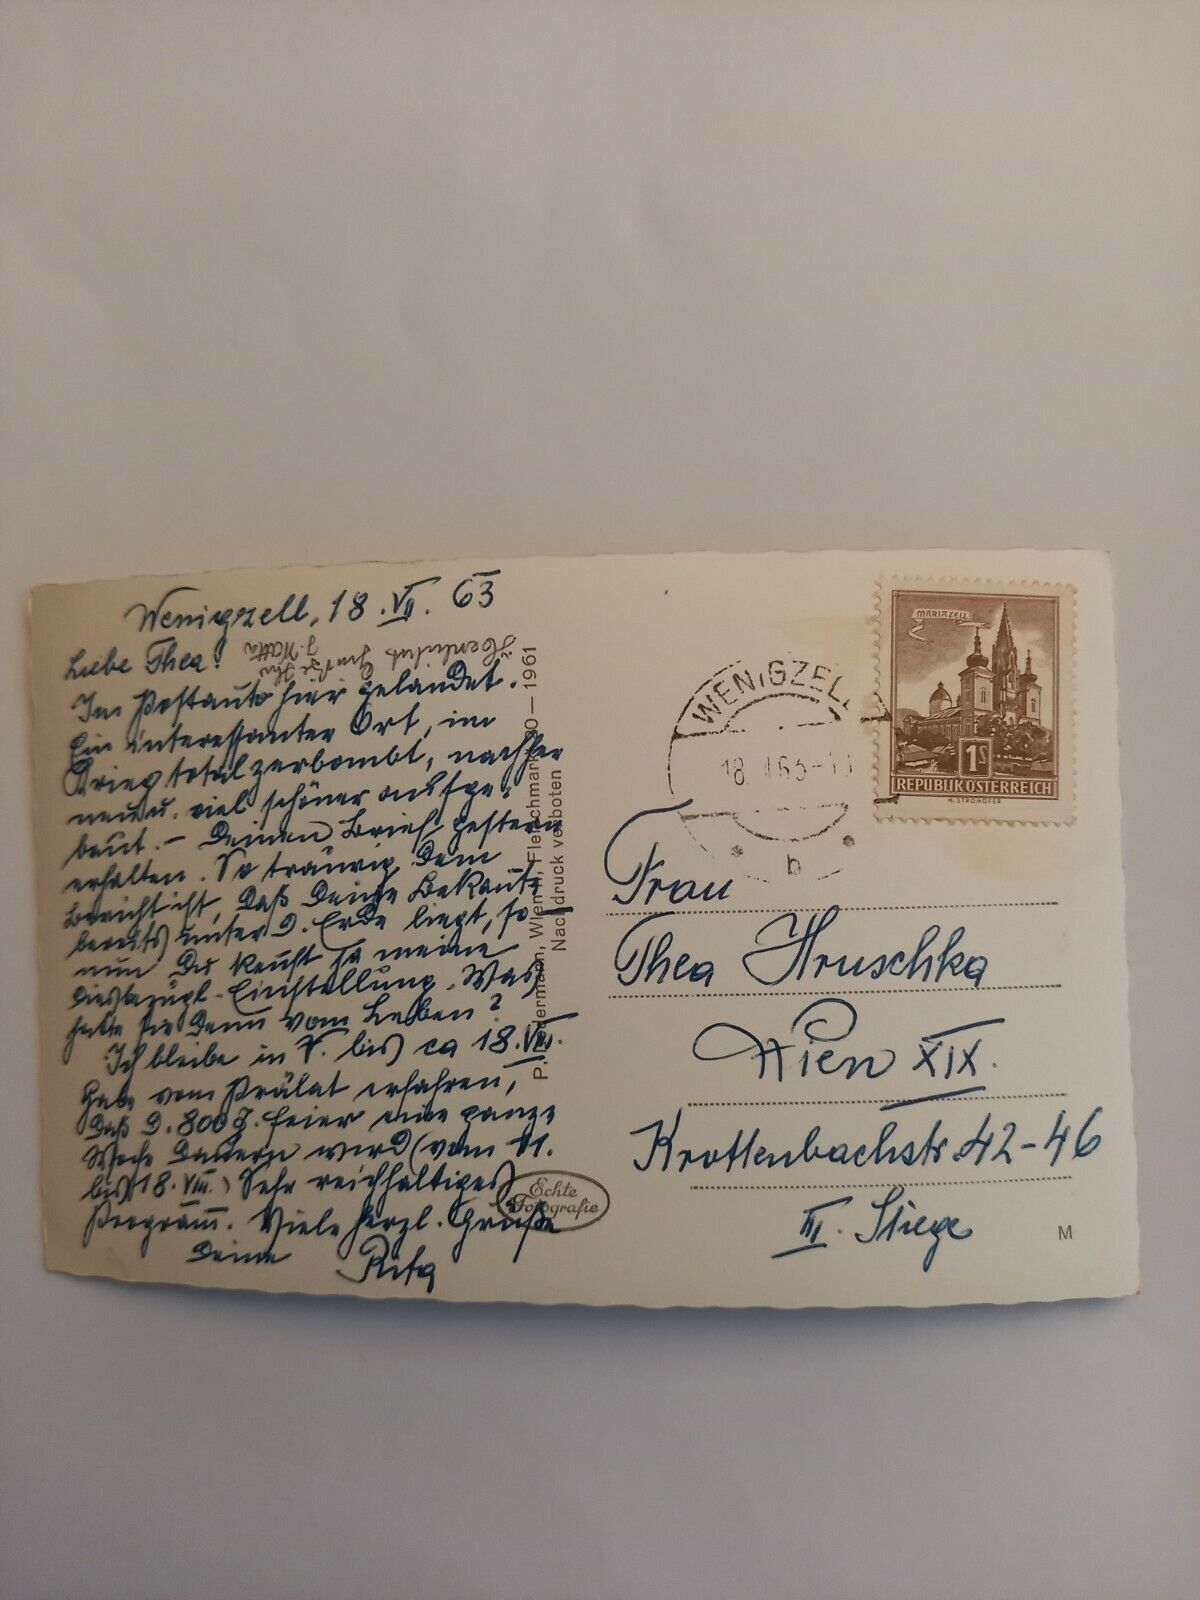 Wenigzell, 18. VII. 63
Liebe Thea!
Im Postauto hier gelandet.
Ein interessanter Ort, im
Krieg total zerbombt, nachher
neu u. viel schöner aufge-
baut. - Deinen Brief gestern
erhalten. So traurig Dein
Bericht ist, daß Deine Bekannte
bereits unter d. Erde liegt, so
nun Du kennst ja meine
diesbezügl. Einstellung. Was
hatte sie denn vom Leben?
Ich bleibe in V. bis ca 18. VIII.
Habe vom Prälat erfahren,
daß d. 800 J. feier eine ganze
Woche dauern wird (vom 11.
bis 18. VIII.) Sehr reichhaltiges
Programm. Viele herzl. Grüße
Deine Rita
Wien, Fleischmarkt 20 — 1961
Nachdruck verboten
Echte
Fotografie
WENIGZELL
18.
b
MARIAZELL
1S
REPUBLIK ÖSTERREICH
H. STROHOFER
Frau
Thea Hruschka
Wien XIX.
Krottenbachstr. 42-46
III. Stiege
M